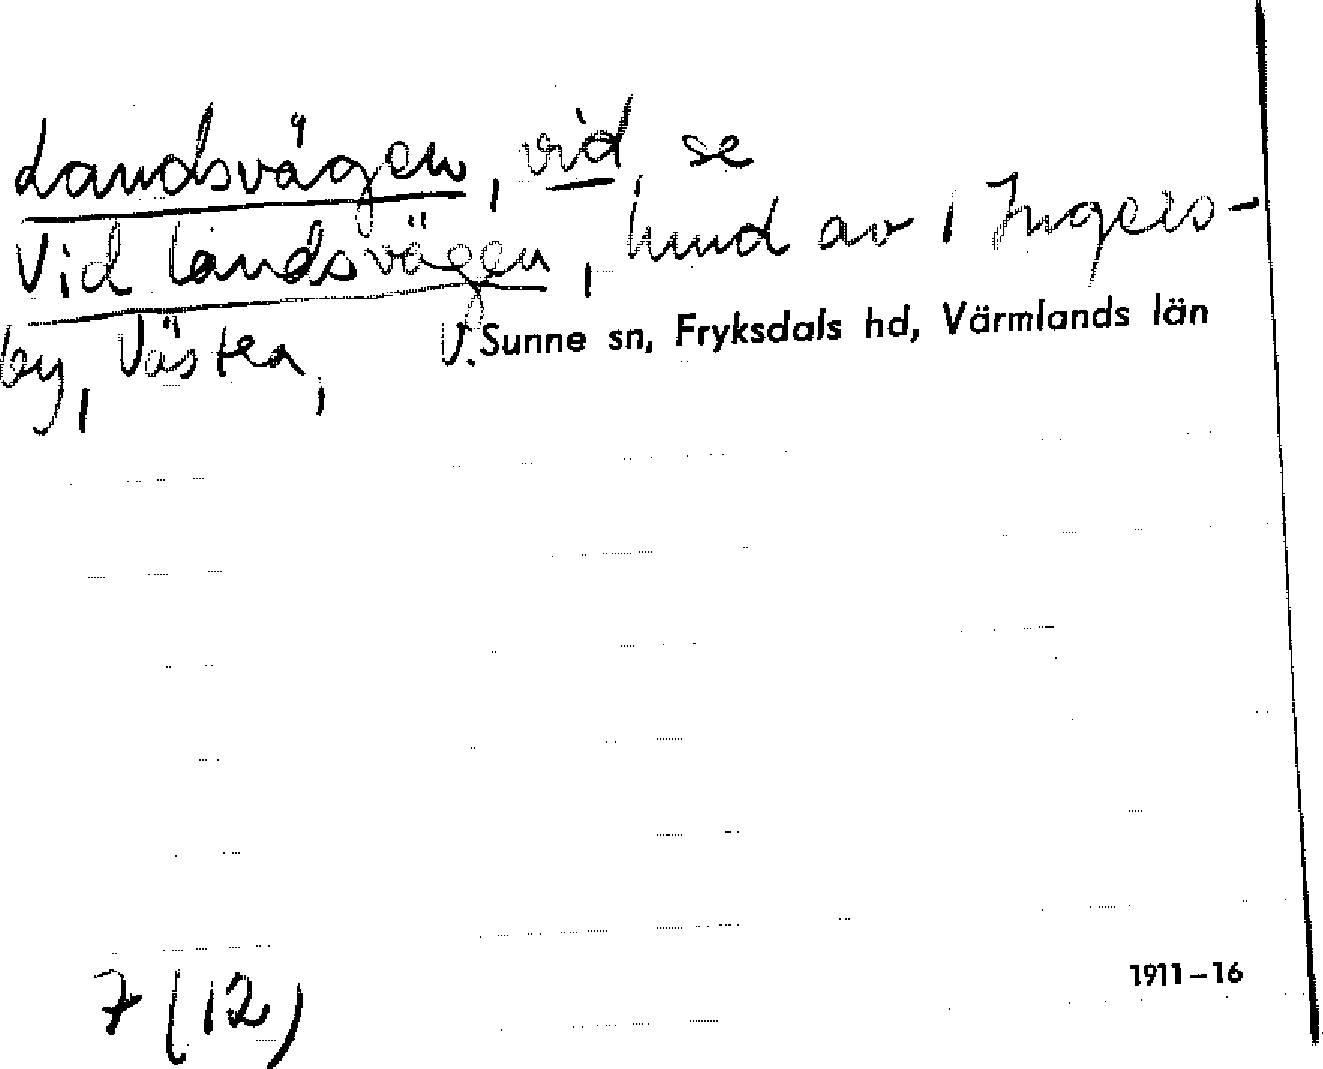 Landsvägen, vid, se
Vid landsvägen, hmd av 1 Ingers-
by, Västra,
V. Sunne sn, Fryksdals hd, Värmlands län
7 (12)
1911–16